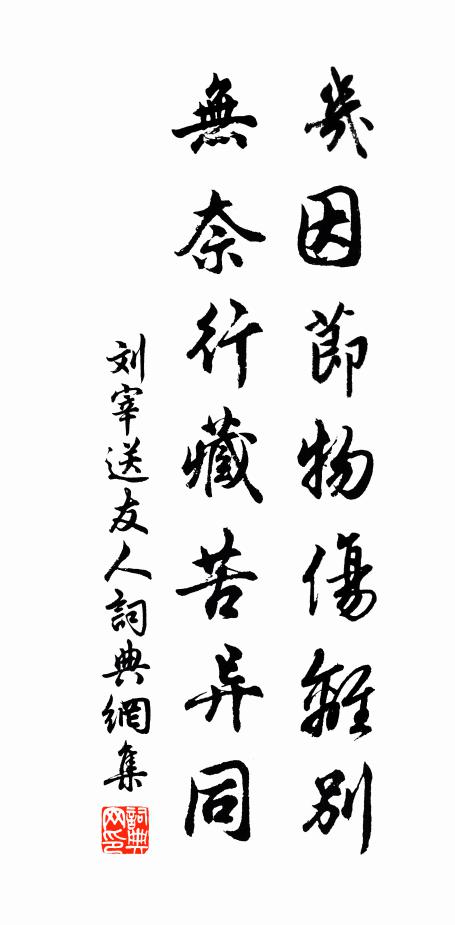 幾因節物傷離別
無奈行藏苦异同
刘宰送友人詞典網集
詞典网印